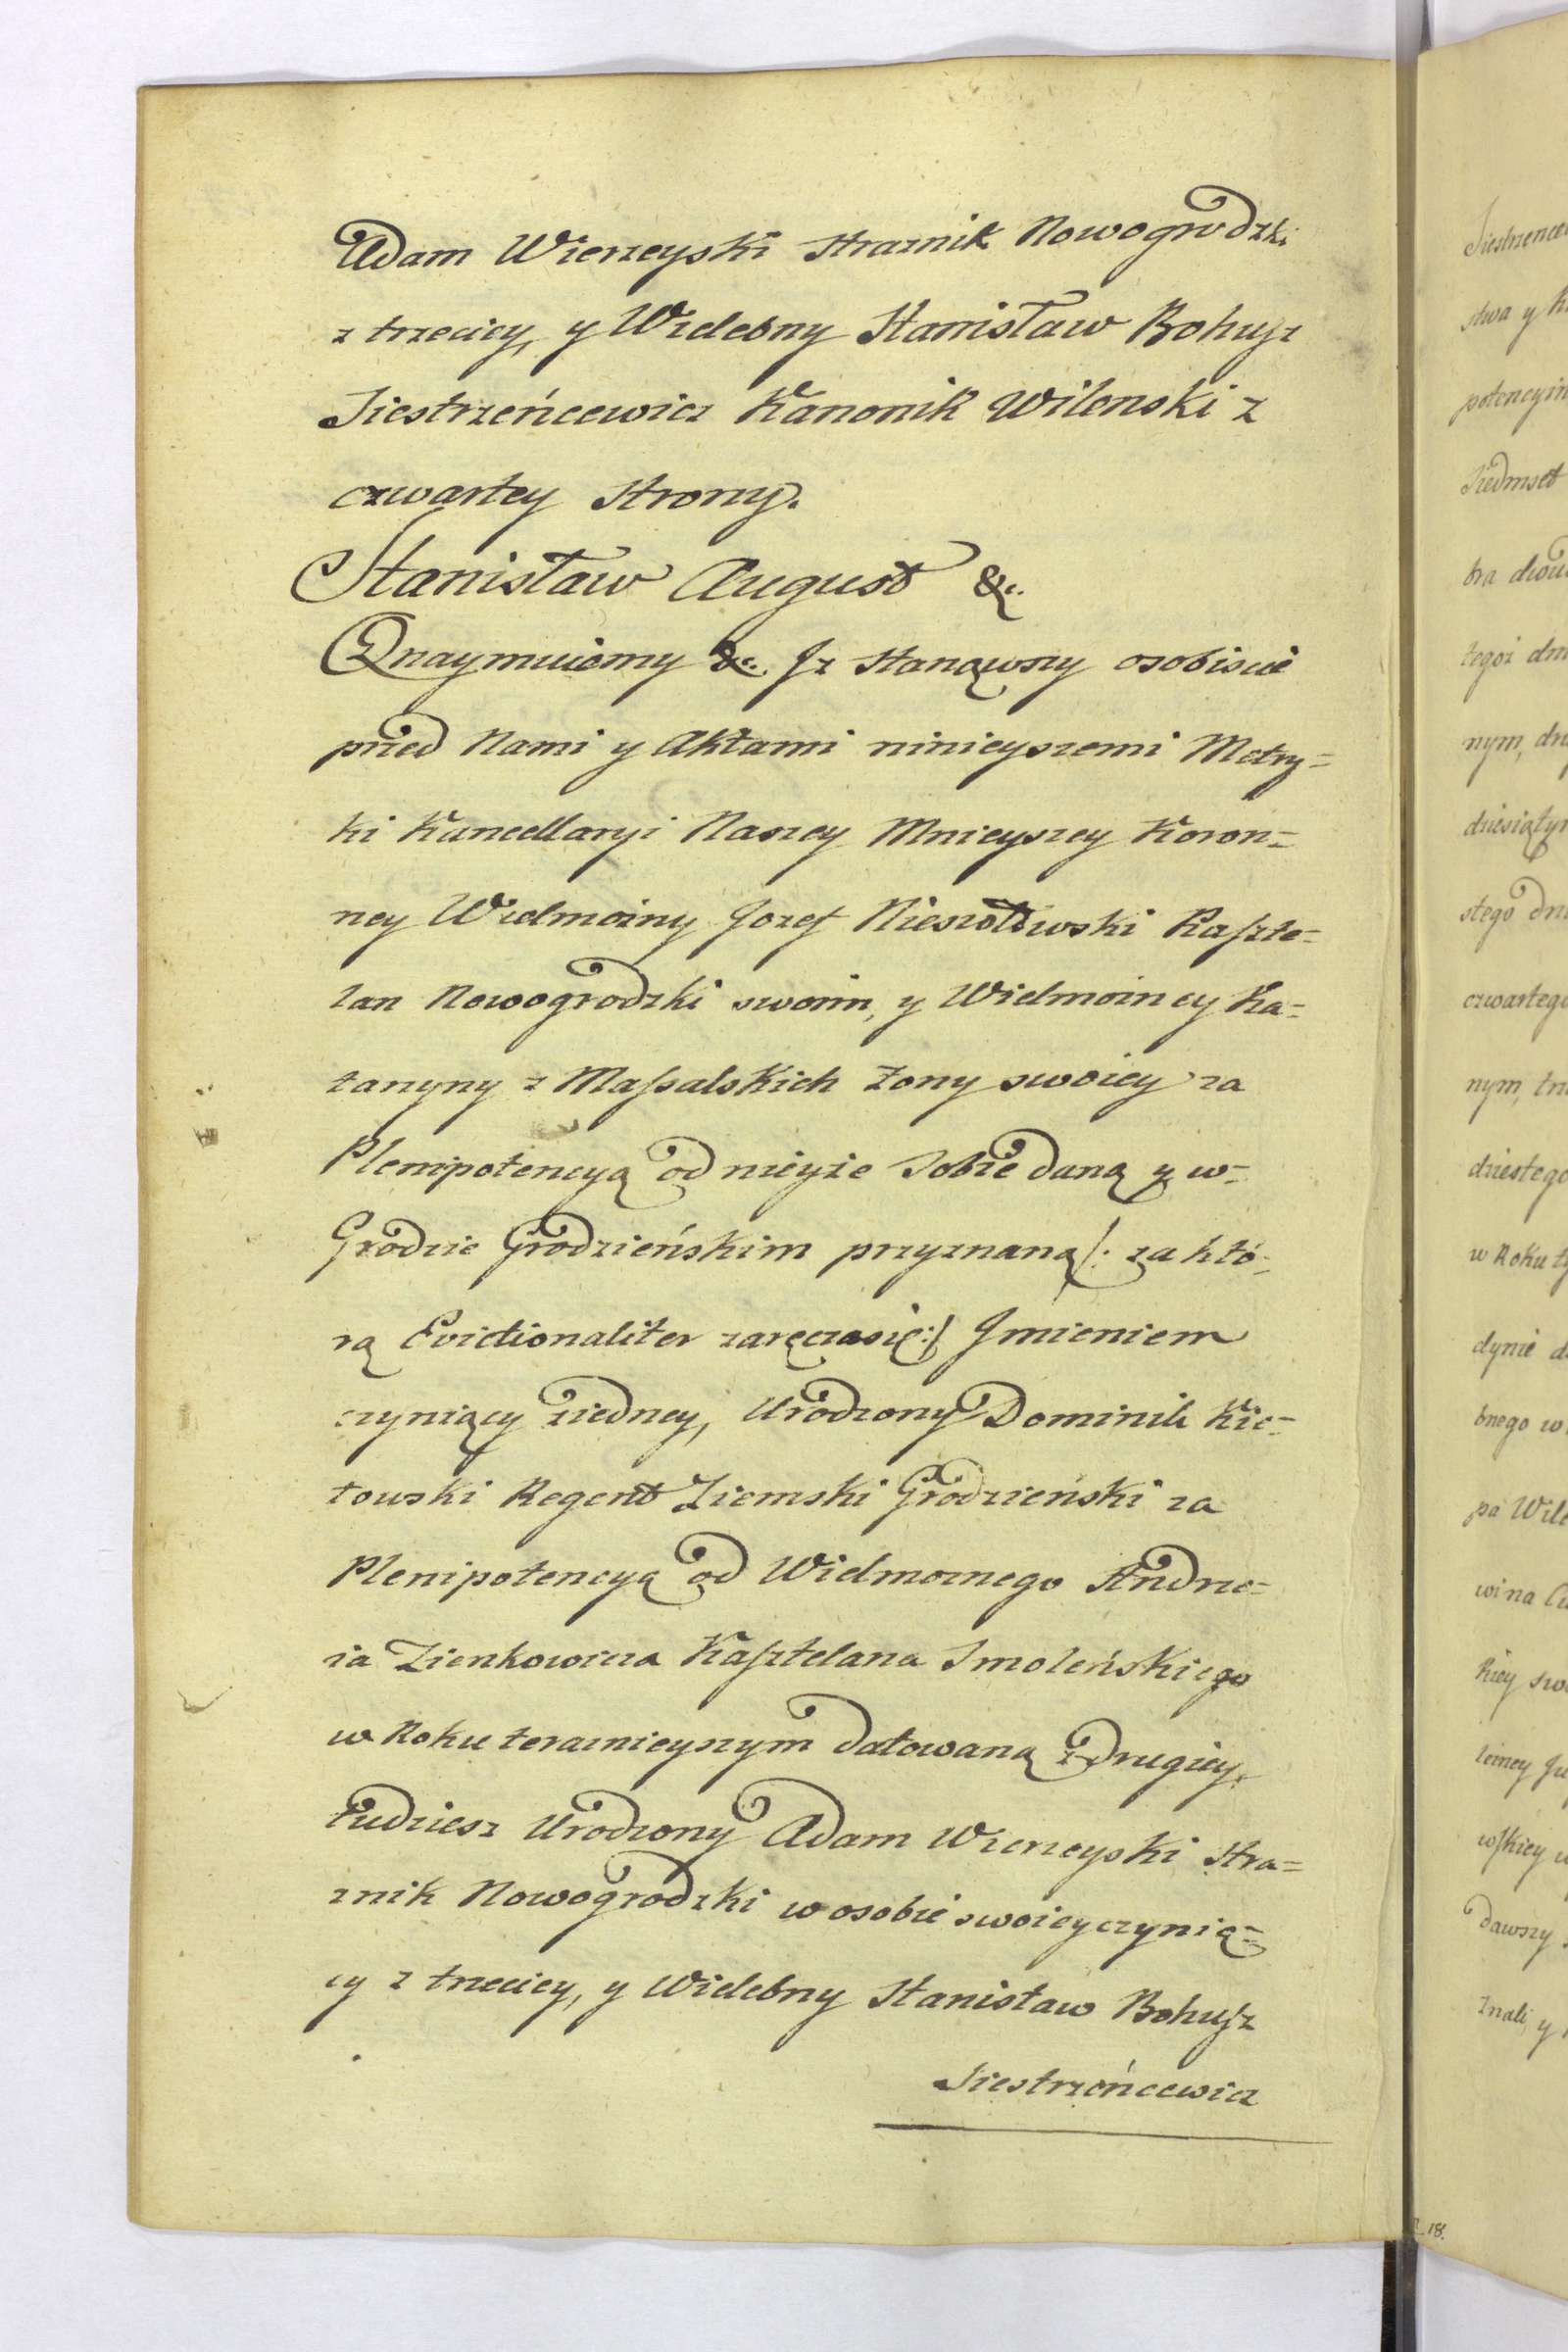 Adam Wierzeyski Straznik Nowogrodzki
z trzeciey, y Wielebny Stanisław Bohusz
Siestrzeńcewicz Kanonik Wilenski z
czwartey Strony.
Stanisław August &c.
Oznaymuiemy &c. Jz stanąwszy osobiscie
przed Nami y Aktami ninieyszemi Metry=
ki Kancellaryi Naszey Mnieyszey Koron=
ney Wielmożny Jozef Niesiołowski Kaszte=
lan Nowogrodzki swoim, y Wielmożney Ka=
tarzyny z Massalskich Zony swoiey za
Plenipotencyą od nieyże Sobie daną y w=
Grodzie Grodzieńskim przyznaną /: za któ=
rą Evictionaliter zaręcza się :/ Jmieniem
czyniący z iedney, Urodzony Dominik Kie=
towski Regent Ziemski Grodzieński za
Plenipotencyą od Wielmoznego Andrze=
ia Zienkowicza Kasztelana Smoleńskiego
w Roku teraznieyszym datowaną z Drugiey,
tudziesz Urodzony Adam Wierzeyski Stra=
znik Nowogrodzki w osobie swoiey czynią=
cy z trzeciey, y Wielebny Stanisław Bohusz
Siestrzeńcewicz
Siestrzence
stwa y
potencyi
Siedmset
tegoż dni
nym,
dziesiątym
stego dni
czwartego
nym,
dziestego
w Roku
dynie
bnego w
pa Wile
kiey
Dawszy
znali, y
18.